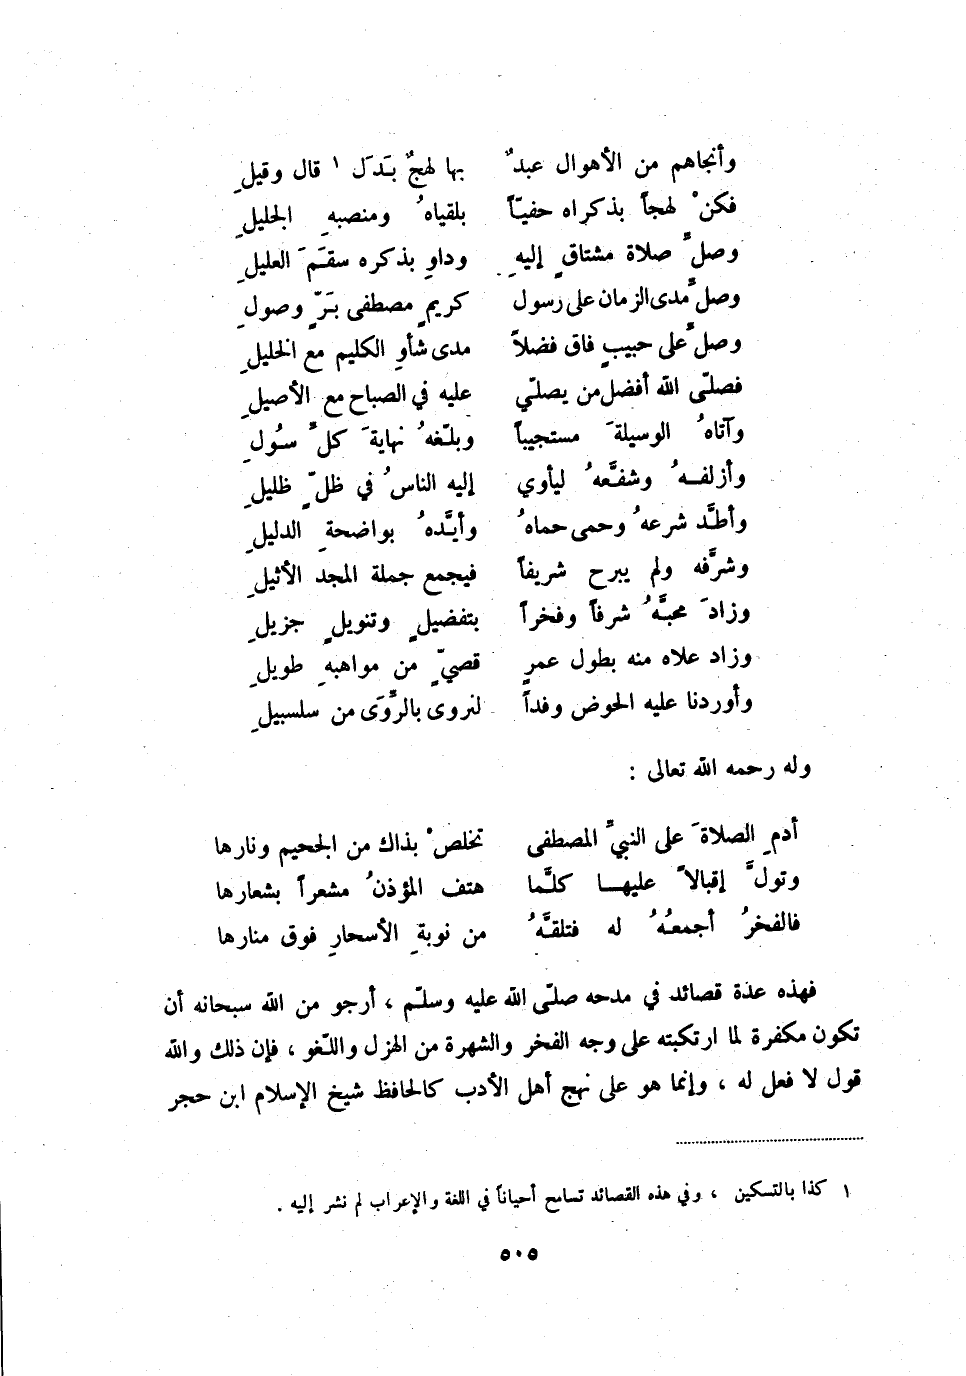 وأنجاهم من الأهوال عبدٌ بها لهجٌ بَدَل ١ قال وقيلِ
فكنْ لهجاً بذكراه حفيّاً بلقياهُ ومنصبهِ الجليلِ
وصلِّ صلاة مشتاقٍ إليهِ وداوِ بذكره سقَمَ العليلِ
وصلِّ مدى الزمان على رسول كريمٍ مصطفى بَرٍّ وصولِ
وصلِّ على حبيبٍ فاق فضلاً مدى شأوِ الكليم مع الخليلِ
فصلّى الله أفضل من يصلّي عليه في الصباح مع الأصيلِ
وآتاهُ الوسيلةَ مستجيباً وبلّغهُ نهايةَ كلِّ سُولِ
وأزلفهُ وشفَّعهُ ليأوي إليه الناسُ في ظلٍّ ظليلِ
وأطَّد شرعهُ وحمى حماهُ وأيَّدهُ بواضحةِ الدليلِ
وشرَّفه ولم يبرح شريفاً فيجمع جملة المجد الأثيلِ
وزادَ محبَّهُ شرفاً وفخراً بتفضيلٍ وتنويلٍ جزيلِ
وزاد علاه منه بطول عمرٍ قصيٍّ من مواهبهِ طويلِ
وأوردنا عليه الحوض وفداً لنروى بالرَّوَى من سلسبيلِ
وله رحمه الله تعالى :
أدمِ الصلاةَ على النبيِّ المصطفى تخلصْ بذاك من الجحيم ونارها
وتولَّ إقبالاً عليها كلَّما هتف المؤذنُ مشعراً بشعارها
فالفخرُ أجمعُهُ له فتلقَّهُ من نوبةِ الأسحارِ فوق منارها
فهذه عدة قصائد في مدحه صلّى الله عليه وسلّم ، أرجو من الله سبحانه أن
تكون مكفرة لما ارتكبته على وجه الفخر والشهرة من الهزل واللّغو ، فإن ذلك والله
قول لا فعل له ، وإنما هو على نهج أهل الأدب كالحافظ شيخ الإسلام ابن حجر
١ كذا بالتسكين ، وفي هذه القصائد تسامح أحياناً في اللغة والإعراب لم نشر إليه .
٥٠٥